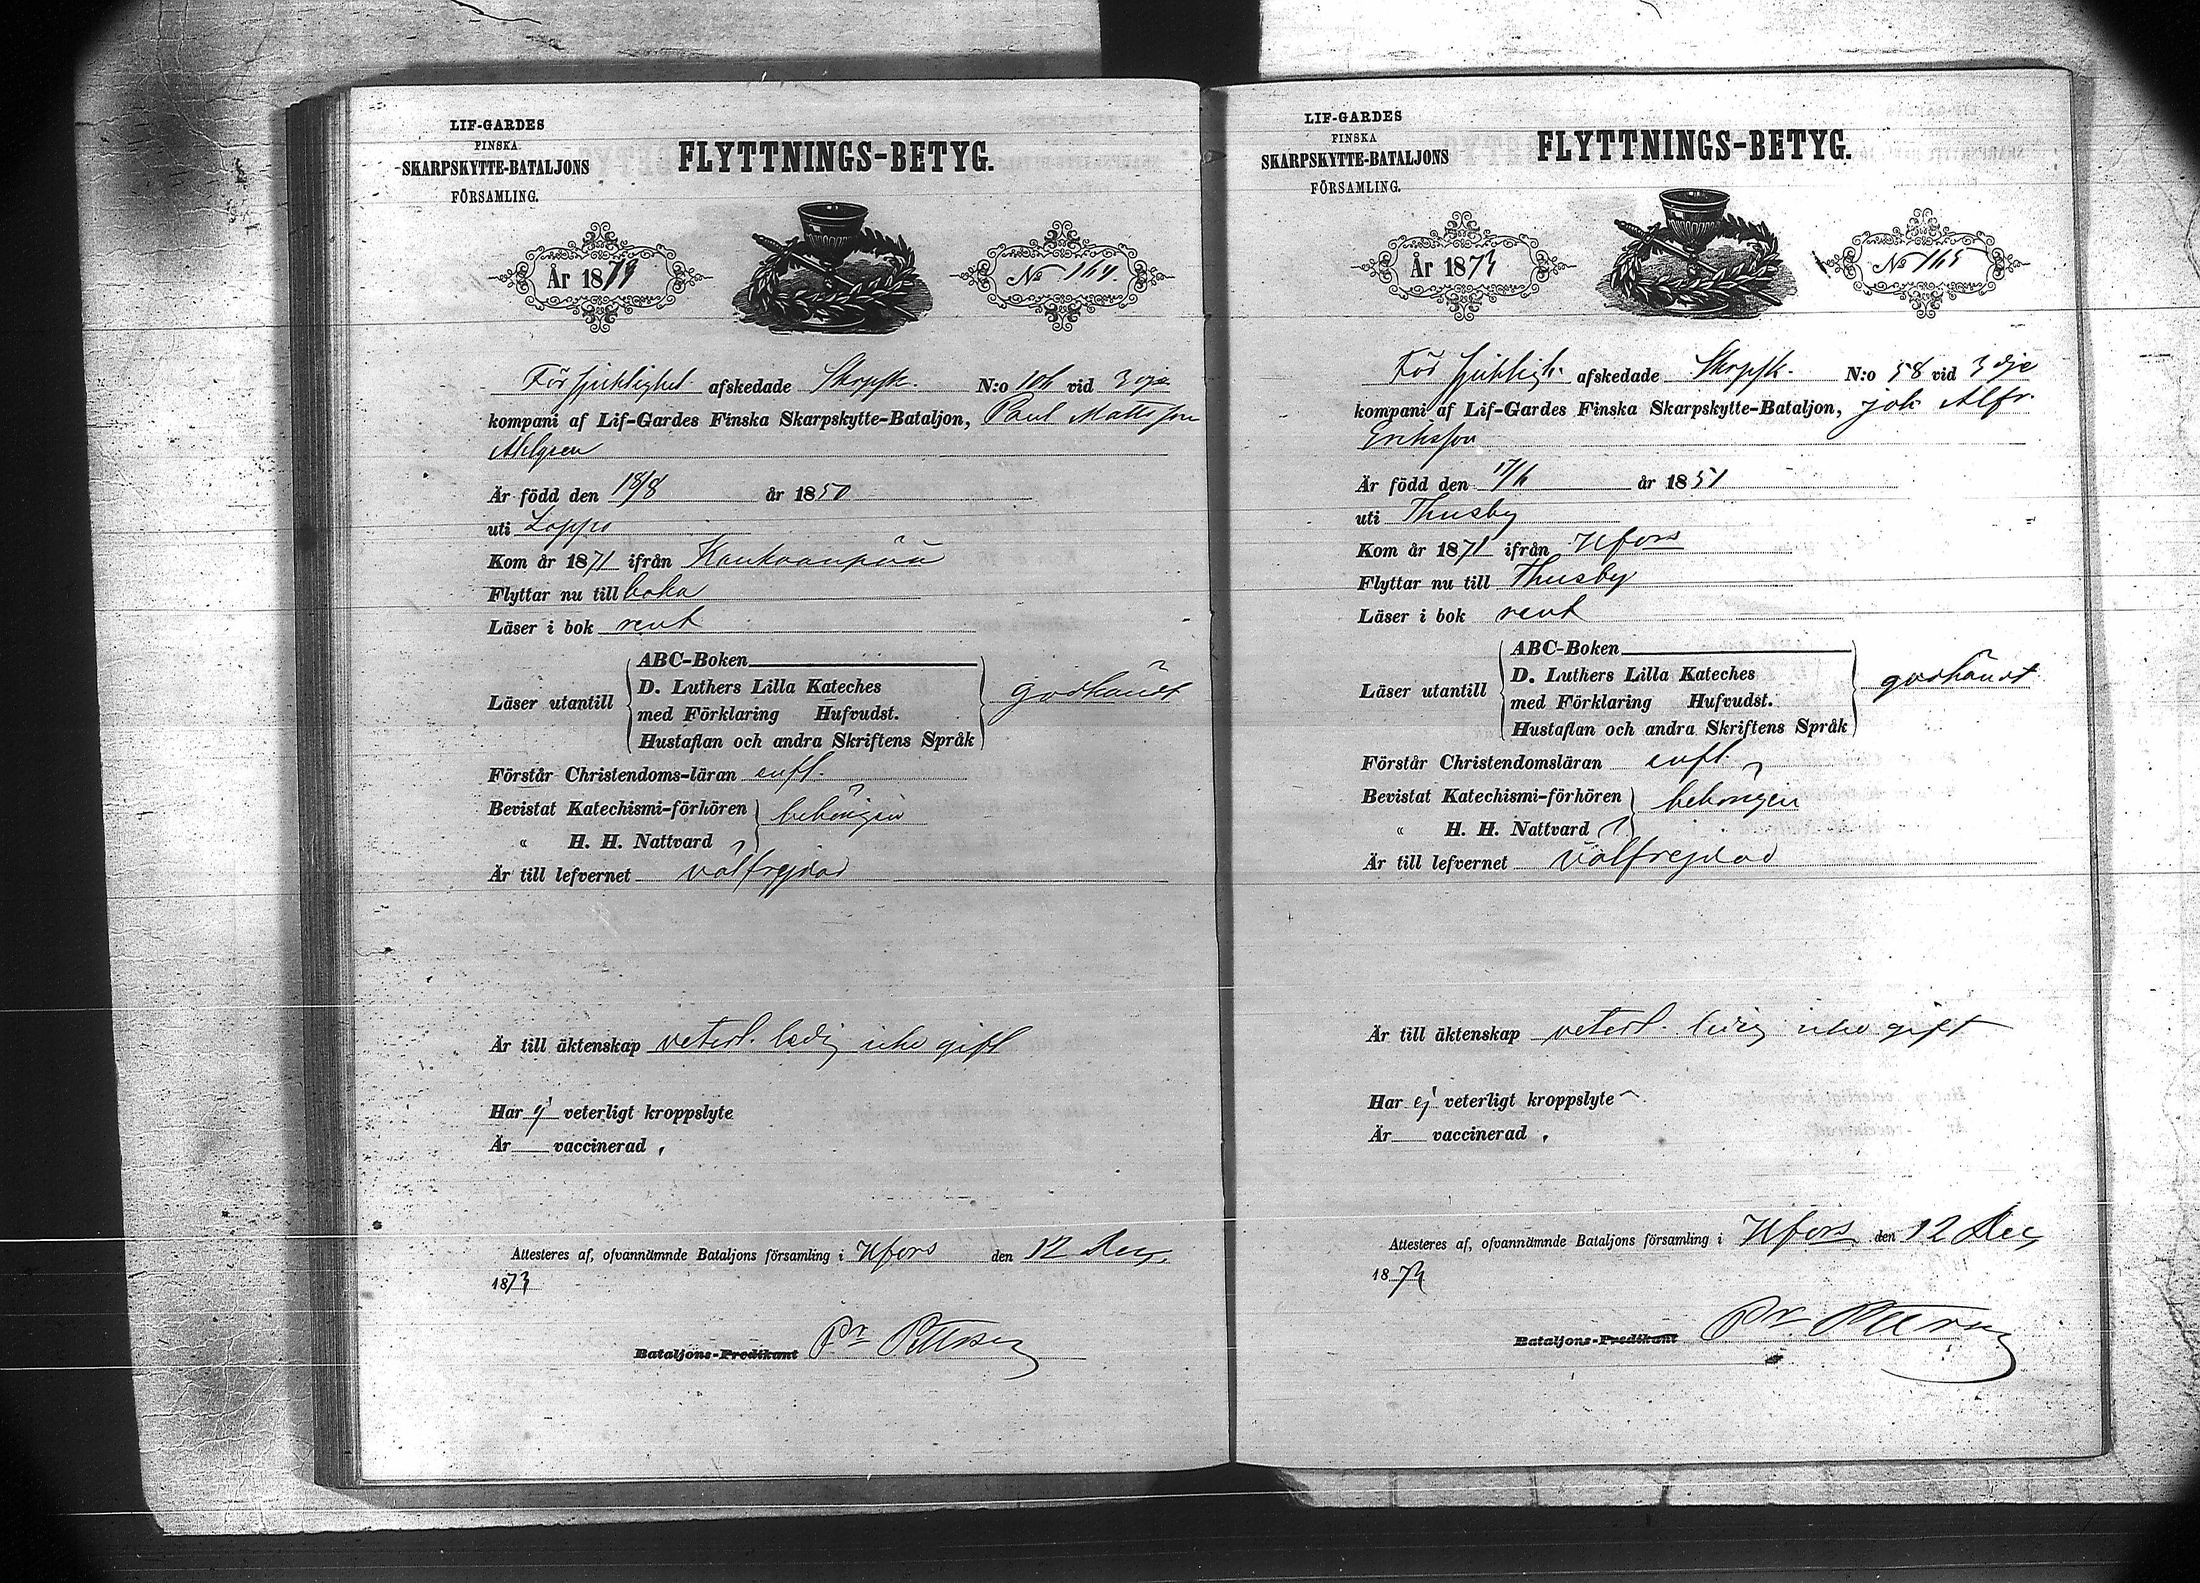 LIF-GARDES
FINSKA
SKARPSKYTTE-BATALJONS
FÖRSAMLING.
FLYTTNINGS-BETYG.
År 1873
No 164.
För sjuklighet afskedade Skrpsk. N:o 106 vid 3 dje
kompani af Lif-Gardes Finska Skarpskytte-Bataljon, Paul Mattsson
Ahlgren
Är född den 18/8 år 1850
uti Loppo
Kom år 1871 ifrån Kauhaanpää
Flyttar nu till
Läser i bok rent
ABC-Boken
Läser utantill D. Luthers Lilla Kateches
med Förklaring Hufvudst.
Hustaflan och andra Skriftens Språk
godkändt
Förstår Christendoms-läran enft.
Bevistat Katechismi-förhören
behörigen
" H. H. Nattvard
Är till lefvernet välfrejdad
Är till äktenskap veterl. ledig icke gift
Har ej veterligt kroppslyte
Är vaccinerad,
Attesteres af, ofvannämnde Bataljons församling i Hfors den 12 Dec,
1873
Bataljons-Predikant
LIF-GARDES
FINSKA
SKARPSKYTTE-BATALJONS
FÖRSAMLING.
FLYTTNINGS-BETYG.
År 1873
No 165
För sjukligh. afskedade Skrpsk. N:o 58 vid 3 dje
kompani af Lif-Gardes Finska Skarpskytte-Bataljon, Joh Alfr.
Eriksson
Är född den 17/6 år 1851
uti Thusby
Kom år 1871 ifrån Hfors
Flyttar nu till Thusby
Läser i bok rent
ABC-Boken
Läser utantill D. Luthers Lilla Kateches
med Förklaring Hufvudst.
Hustaflan och andra Skriftens Språk
godkändt
Förstår Christendomsläran enft.
Bevistat Katechismi-förhören
behörigen
" H. H. Nattvard
Är till lefvernet välfrejdad
Är till äktenskap veterl. ledig icke gift
Har ej veterligt kroppslyte
Är vaccinerad,
Attesteres af, ofvannämnde Bataljons församling i Hfors den 12 Dec,
1873
Bataljons-Predikant